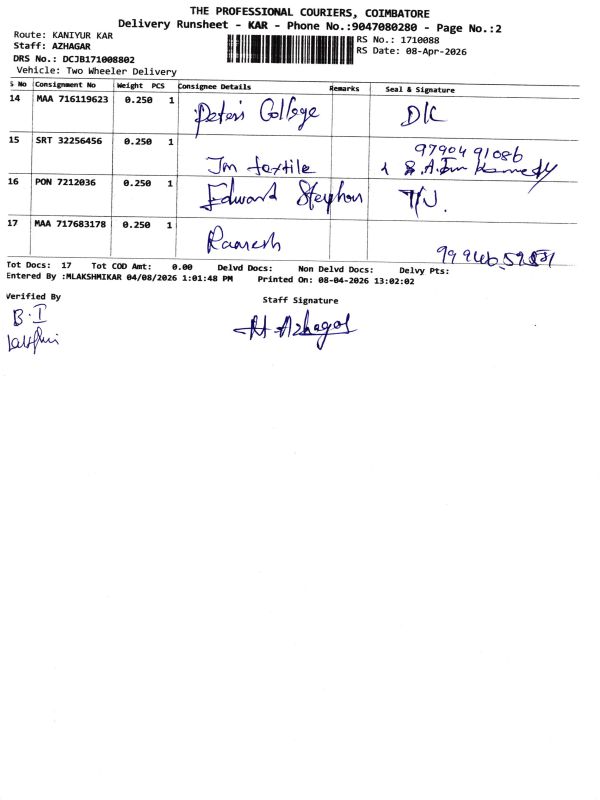 THE PROFESSIONAL COURIERS, COIMBATORE
Delivery Runsheet - KAR - Phone No.:9047080280 - Page No.:2
Route: KANIYUR KAR
RS No.: 1710088
Staff: AZHAGAR
RS Date: 08-Apr-2026
DRS No.: DCJB171008802
Vehicle: Two Wheeler Delivery
S No Consignment No Weight PCS Consignee Details Remarks Seal & Signature
14 MAA 716119623 0.250 1 Peters College D/C
15 SRT 32256456 0.250 1 Jm textile 9790491086
16 PON 7212036 0.250 1 Edward Stephen
17 MAA 717683178 0.250 1 Ramesh
Tot Docs: 17 Tot COD Amt: 0.00 Delvd Docs: Non Delvd Docs: Delvy Pts:
Entered By :MLAKSHMIKAR 04/08/2026 1:01:48 PM Printed On: 08-04-2026 13:02:02
Verified By
Staff Signature
B.I